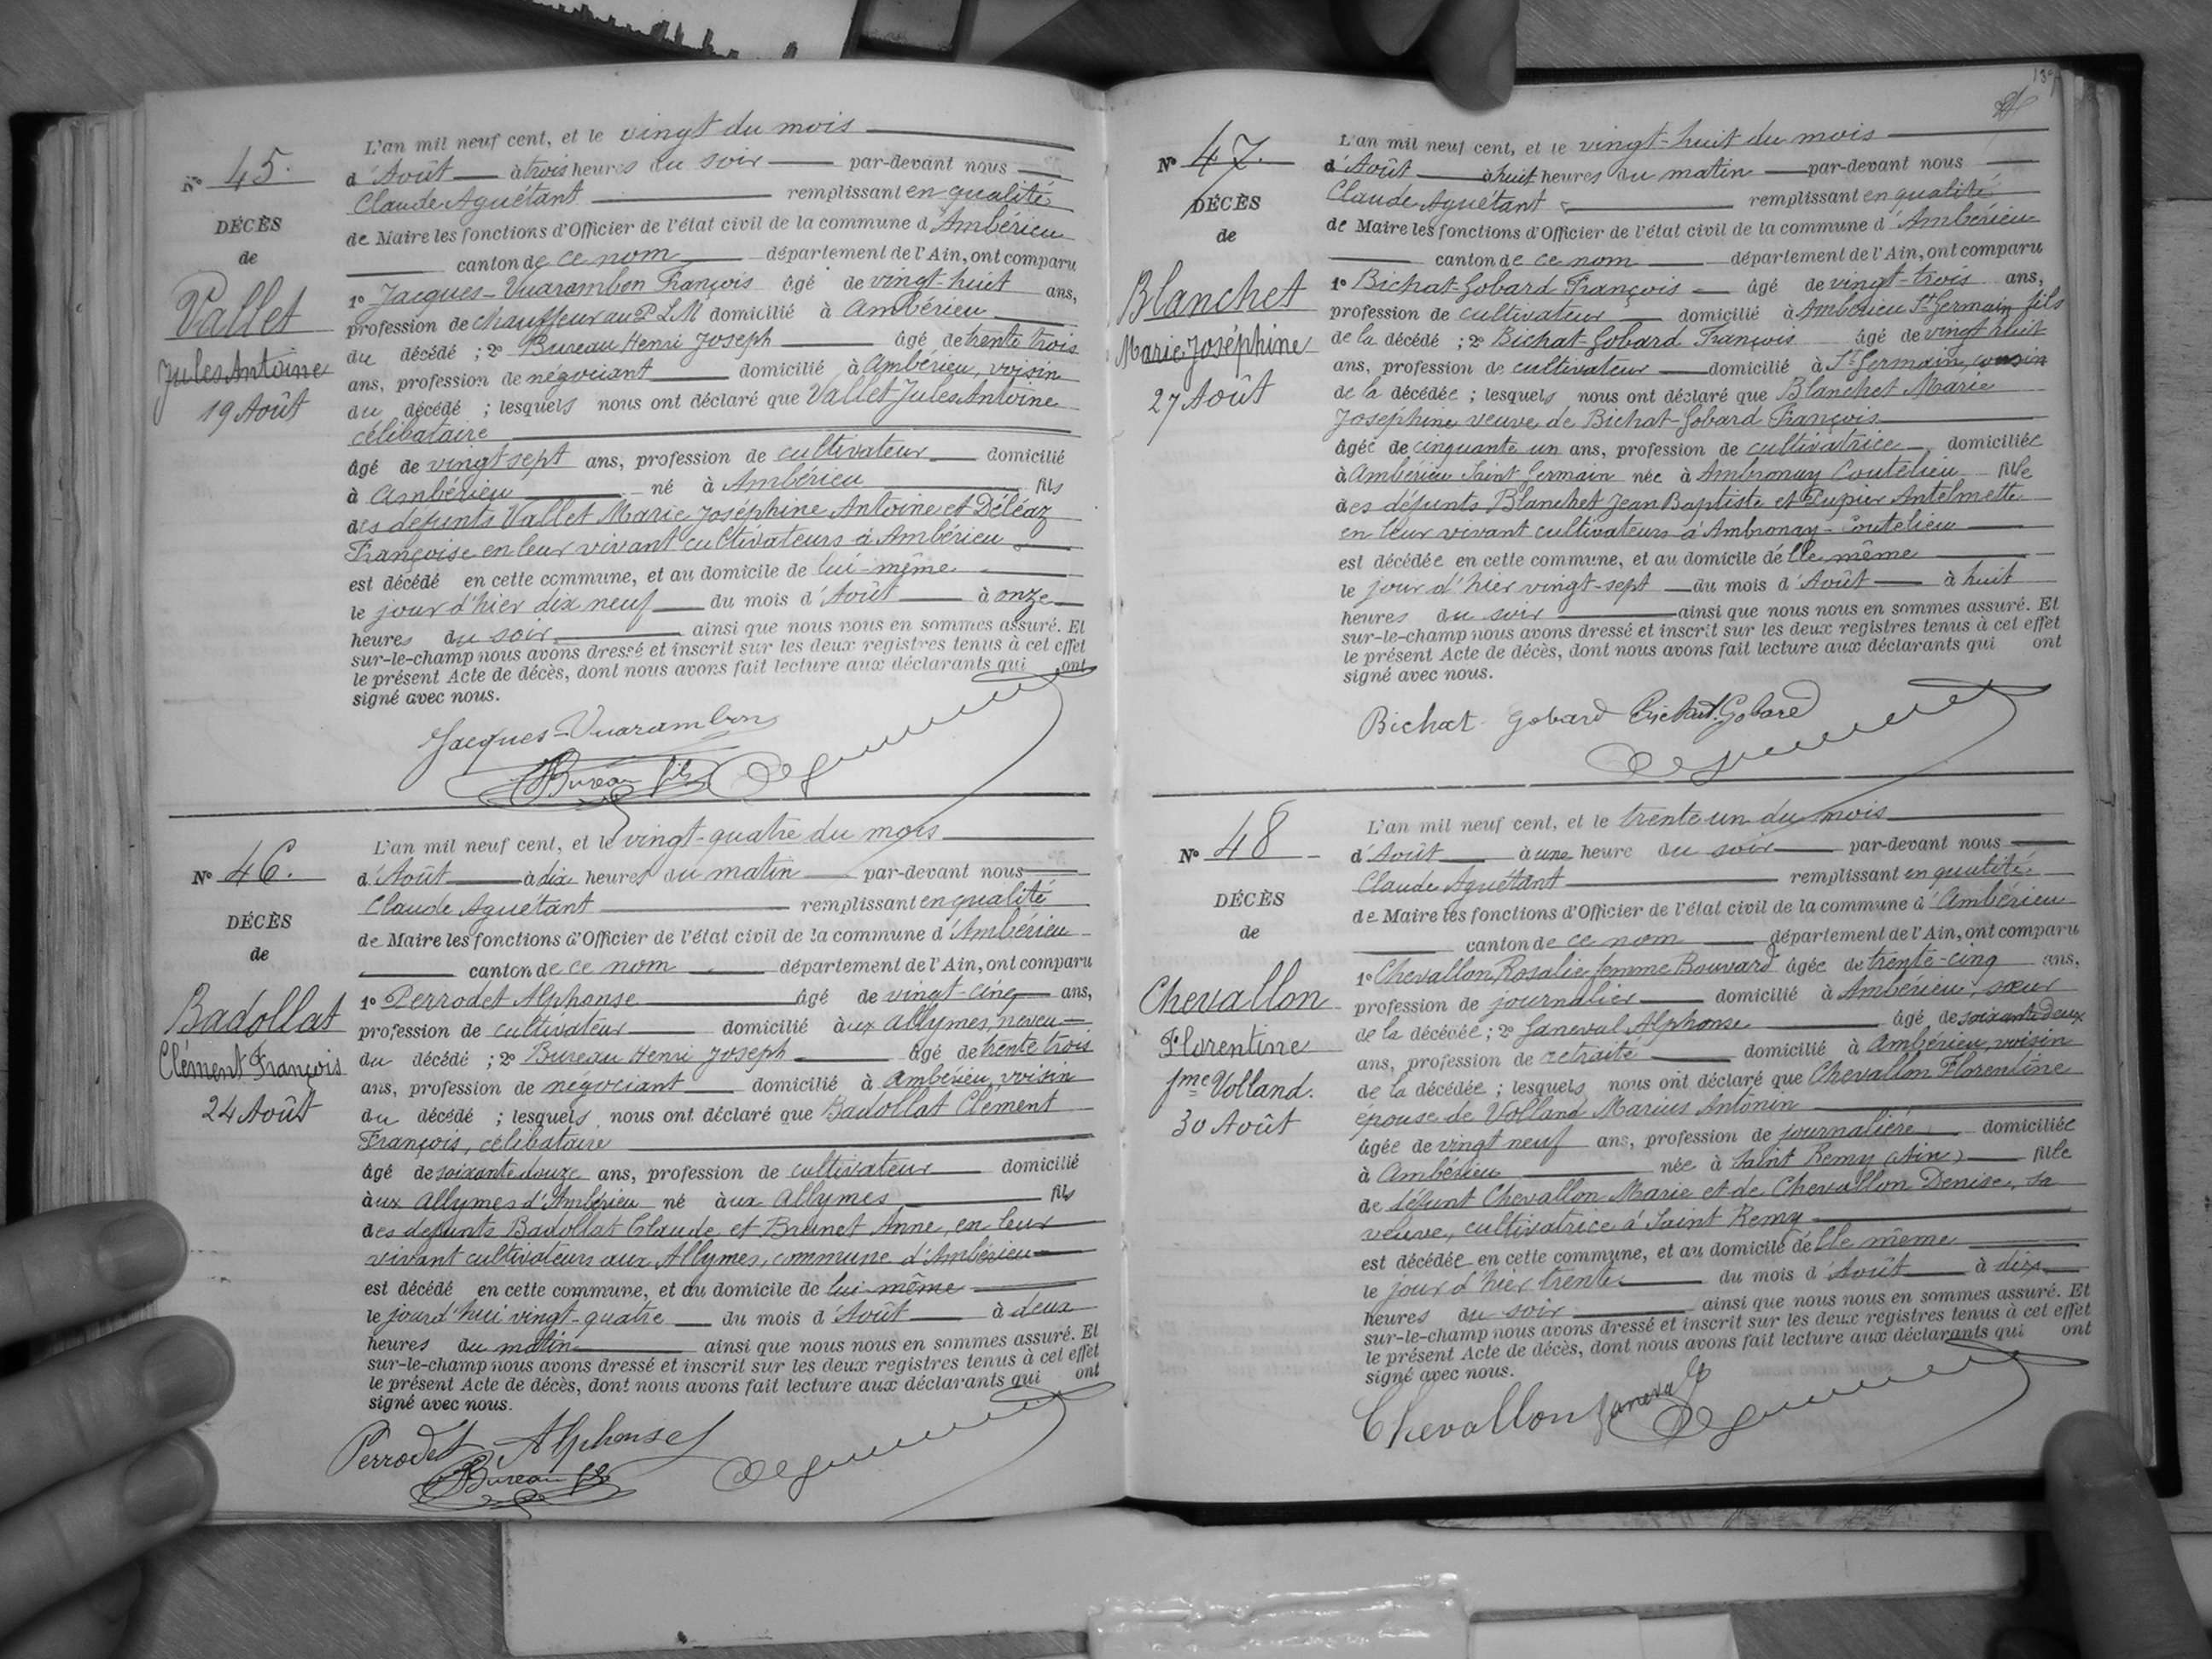 N° 45.
DÉCÈS
de
Vallet
Jules Antoine
19 Août
L'an mil neuf cent, et le vingt du mois
d'Août à trois heures du soir par-devant nous
Claude Aguétant remplissant en qualité
de Maire les fonctions d'Officier de l'état civil de la commune d'Ambérieu
canton de ce nom département de l'Ain, ont comparu
1° Jacques-Vuarambon François âgé de vingt-huit ans,
profession de chauffeur au P L M domicilié à Ambérieu
du décédé ; 2° Bureau Henri Joseph âgé de trente trois
ans, profession de négociant domicilié à Ambérieu, voisin
du décédé ; lesquels nous ont déclaré que Vallet Jules Antoine
célibataire
âgé de vingt sept ans, profession de cultivateur domicilié
à Ambérieu né à Ambérieu fils
des défunts Vallet Marie Joséphine Antoine et Déléaz
Françoise en leur vivant cultivateurs à Ambérieu
est décédé en cette commune, et au domicile de lui-même
le jour d'hier dix neuf du mois d'Août à onze
heures du soir ainsi que nous nous en sommes assuré. Et
sur-le-champ nous avons dressé et inscrit sur les deux registres tenus à cet effet
le présent Acte de décès, dont nous avons fait lecture aux déclarants qui ont
signé avec nous.
Jacques-Vuarambon
Bureau fils
N° 46.
DÉCÈS
de
Badollat
Clément François
24 Août
L'an mil neuf cent, et le vingt-quatre du mois
d'Août à dix heures du matin par-devant nous
Claude Aguétant remplissant en qualité
de Maire les fonctions d'Officier de l'état civil de la commune d'Ambérieu
canton de ce nom département de l'Ain, ont comparu
1° Perrodet Alphonse âgé de vingt-cinq ans,
profession de cultivateur domicilié aux Allymes, neveu
du décédé ; 2° Bureau Henri Joseph âgé de trente trois
ans, profession de négociant domicilié à Ambérieu, voisin
du décédé ; lesquels nous ont déclaré que Badollat Clément
François, célibataire
âgé de soixante douze ans, profession de cultivateur domicilié
aux Allymes d'Ambérieu né aux Allymes fils
des défunts Badollat Claude et Brunet Anne, en leur
vivant cultivateurs aux Allymes, commune d'Ambérieu
est décédé en cette commune, et au domicile de lui-même
le jourd'hui vingt-quatre du mois d'Août à deux
heures du matin ainsi que nous nous en sommes assuré. Et
sur-le-champ nous avons dressé et inscrit sur les deux registres tenus à cet effet
le présent Acte de décès, dont nous avons fait lecture aux déclarants qui ont
signé avec nous.
Perrodet Alphonse
Bureau fils
N° 47.
DÉCÈS
de
Blanchet
Marie Joséphine
27 Août
L'an mil neuf cent, et le vingt-huit du mois
d'Août à huit heures du matin par-devant nous
Claude Aguétant remplissant en qualité
de Maire les fonctions d'Officier de l'état civil de la commune d'Ambérieu
canton de ce nom département de l'Ain, ont comparu
1° Bichat-Gobard François âgé de vingt-trois ans,
profession de cultivateur domicilié à Ambérieu St Germain fils
de la décédé ; 2° Bichat-Gobard François âgé de vingt huit
ans, profession de cultivateur domicilié à St Germain, cousin
de la décédée ; lesquels nous ont déclaré que Blanchet Marie
Joséphine veuve de Bichat-Gobard François
âgée de cinquante un ans, profession de cultivatrice domiciliée
à Ambérieu Saint Germain née à Ambronay Coutelieu fille
des défunts Blanchet Jean Baptiste et Dupier Antelmette
en leur vivant cultivateurs à Ambronay-Coutelieu
est décédée en cette commune, et au domicile d'elle même
le jour d'hier vingt-sept du mois d'Août à huit
heures du soir ainsi que nous nous en sommes assuré. Et
sur-le-champ nous avons dressé et inscrit sur les deux registres tenus à cet effet
le présent Acte de décès, dont nous avons fait lecture aux déclarants qui ont
signé avec nous.
Bichat Gobard Bichat.Gobard
N° 48
DÉCÈS
de
Chevallon
Florentine
fme Volland.
30 Août
L'an mil neuf cent, et le trente un du mois
d'Août à une heure du soir par-devant nous
Claude Aguétant remplissant en qualité
de Maire les fonctions d'Officier de l'état civil de la commune d'Ambérieu
canton de ce nom département de l'Ain, ont comparu
1° Chevallon Rosalie femme Bouvard âgée de trente-cinq ans,
profession de journalier domicilié à Ambérieu, sœur
de la décédée ; 2° Janeval Alphonse âgé de soixante deux
ans, profession de retraité domicilié à Ambérieu, voisin
de la décédée ; lesquels nous ont déclaré que Chevallon Florentine
épouse de Volland Marius Antonin
âgée de vingt neuf ans, profession de journalière domiciliée
à Ambérieu née à Saint Remy (Ain) fille
de défunt Chevallon Marie et de Chevallon Denise, sa
veuve, cultivatrice à Saint Remy
est décédée en cette commune, et au domicile d'elle même
le jour d'hier trente du mois d'Août à dix
heures du soir ainsi que nous nous en sommes assuré. Et
sur-le-champ nous avons dressé et inscrit sur les deux registres tenus à cet effet
le présent Acte de décès, dont nous avons fait lecture aux déclarants qui ont
signé avec nous.
Chevallon Janeval